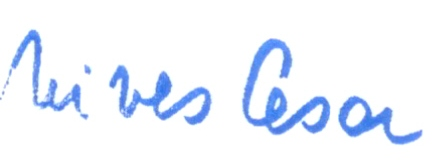 Nives Cesar